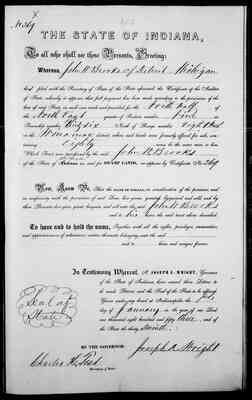 No 369
THE STATE OF INDIANA,
To all who shall see these Presents, Greeting:
Whereas, John W Brooks of Detroit Michigan
has filed with the Secretary of State of the State aforesaid, the Certificate of the Auditor
of State, whereby it appears that full payment has been made agreeably to the provisions of the
law of any State in such case made and provided, for the North half of
the North East quarter of Section number
Township number of Range number
in the district where such lands were formerly offered for sale, con-
taining Eighty acres to the same more or less
Which Tract was by the said John W Brooks
of the State of Indiana as and for SWAMP LAND, as appears by Certificate No 369
Now, Know Ye, That the STATE OF INDIANA, in consideration of the premises, and
in conformity with the provisions of said Laws, has given, granted, bargained and sold, and by
these Presents does give, grant, bargain, and sell unto the said John W Brooks
and to his heirs the said tract above described
To have and to hold the same, Together with all the rights, privileges, immunities,
and appurtenances of whatsoever nature thereunto belonging, unto the said
and to heirs and assigns forever.
In Testimony Whereof, I, JOSEPH A. WRIGHT, Governor
of the State of Indiana, have caused these Letters to
be made Patent, and the Seal of the State to be affixed.
Given under my hand at Indianapolis the
day of January in the year of our Lord
one thousand eight hundred and fifty three, and of
the State the thirty
Seal of
State
BY THE GOVERNOR:
Joseph A Wright
Charles H. Test
Secretary of State